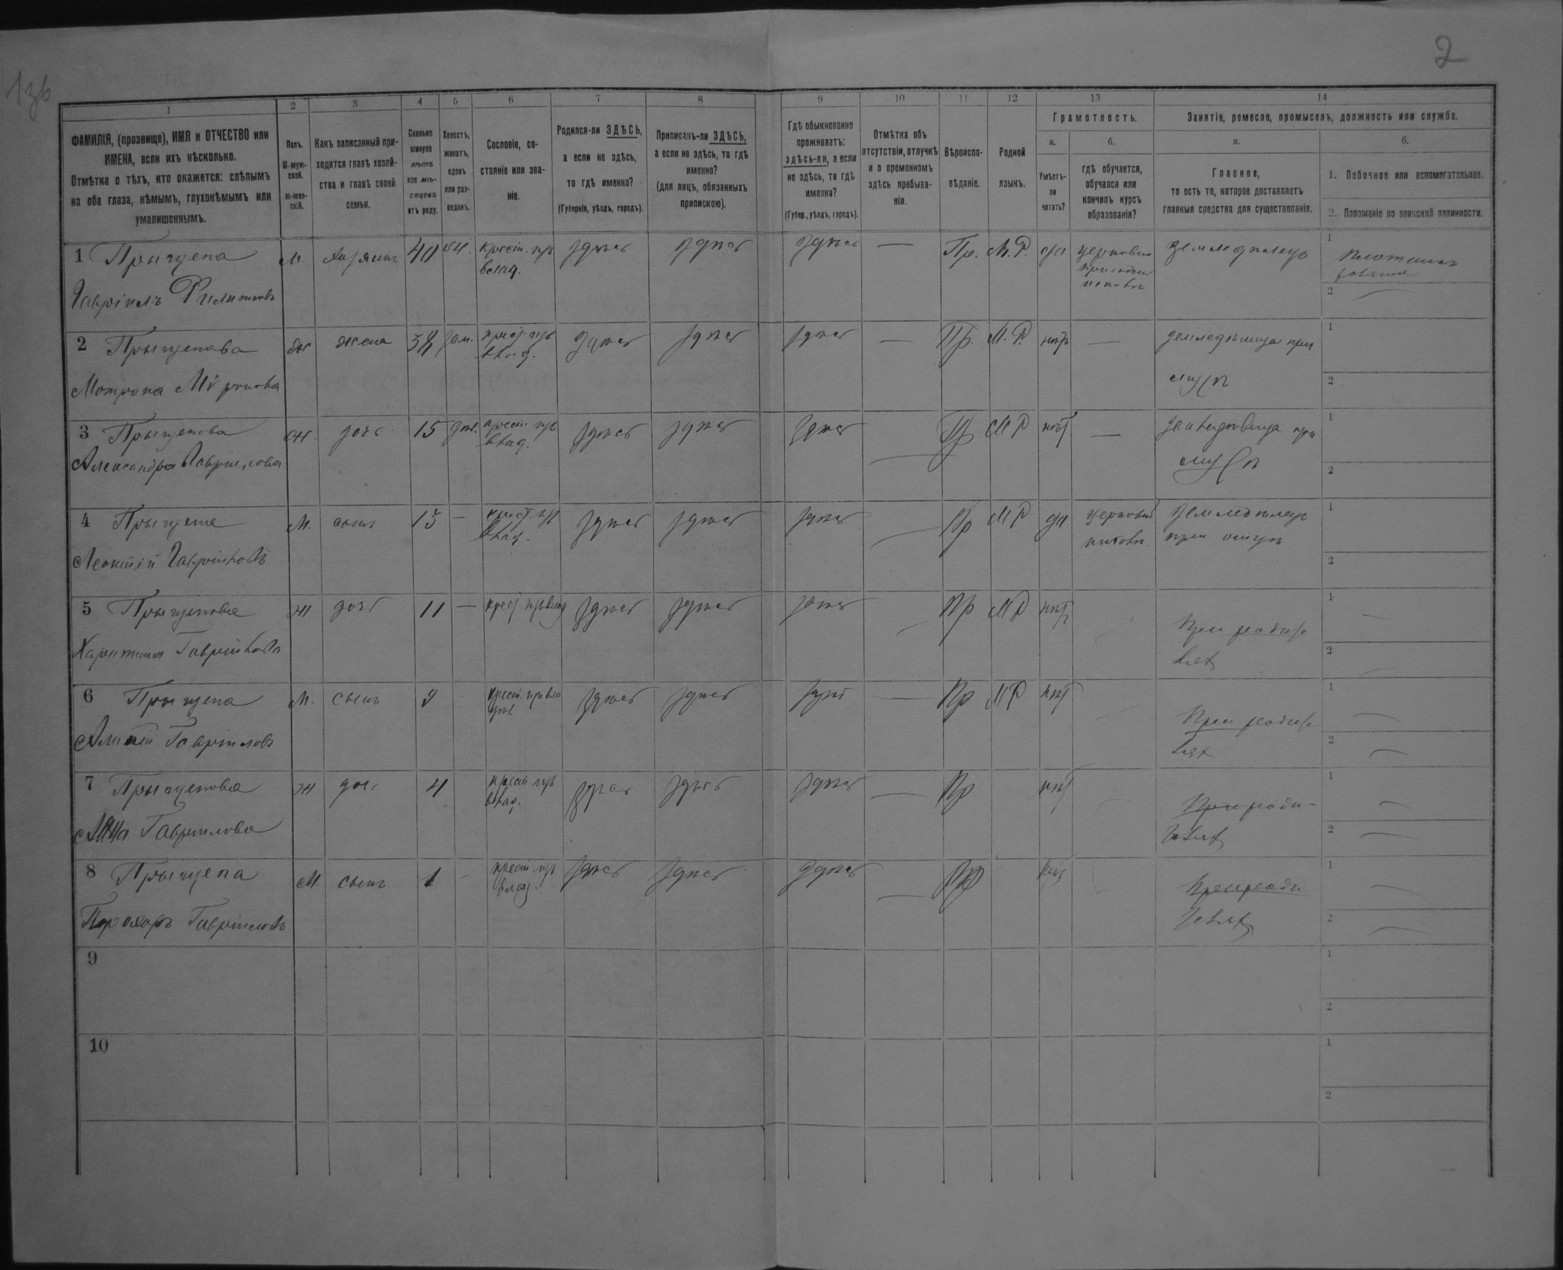 2
1 2 3 4 5 6 7 8 9 10 11 12 13 14
ФАМИЛІЯ, (прозвище), ИМЯ и ОТЧЕСТВО или
ИМЕНА, если ихъ нѣсколько.
Отмѣтка о тѣхъ, кто окажется: слѣпымъ
на оба глаза, нѣмымъ, глухонѣмымъ или
умалишеннымъ.
Полъ.
М-муж-
ской.
Ж-жен-
скій.
Какъ записанный при-
ходится главѣ хозяй-
ства и главѣ своей
семьи.
Сколько
минуло
лѣтъ
или мѣ-
сяцевъ
отъ роду.
Холостъ,
женатъ,
вдовъ
или раз-
веденъ.
Сословіе, со-
стояніе или зва-
ніе.
Родился-ли ЗДѢСЬ,
а если не здѣсь,
то гдѣ именно?
(Губернія, уѣздъ, городъ).
Приписанъ-ли ЗДѢСЬ,
а если не здѣсь, то гдѣ
именно?
(для лицъ, обязанныхъ
припискою).
Гдѣ обыкновенно
проживаетъ:
здѣсь-ли, а если
не здѣсь, то гдѣ
именно?
(Губер., уѣздъ, городъ).
Отмѣтка объ
отсутствіи, отлучкѣ
и о временномъ
здѣсь пребыва-
ніи.
Вѣроиспо-
вѣданіе.
Родной
языкъ.
Грамотность.
а.
Умѣетъ-
ли
читать?
б.
гдѣ обучается,
обучался или
кончилъ курсъ
образованія?
Занятіе, ремесло, промыселъ, должность или служба.
а.
Главное,
то есть то, которое доставляетъ
главныя средства для существованія.
б.
1. Побочное или вспомогательное.
2. Положеніе по воинской повинности.
1 Прыщепа
Гавріилъ Филиповъ
м. хозяинъ 40 здѣсь здѣсь здѣсь — Пр. М.Р. да земледѣлецъ
1
2 —
2 Прыщепова
Мотрона
ж жена 38 зам. здѣсь здѣсь здѣсь — Пр. М.Р. нѣтъ — земледѣлица при
мужѣ
1
2
3 Прыщепова
Александра Гавріилова
ж дочь 15 здѣсь здѣсь здѣсь — Пр М Р нѣтъ — земледѣлица при
1
2
4 Прыщепа
Леонтій Гавріиловъ
М. сынъ 13 — здѣсь здѣсь здѣсь — Пр М Р да земледѣлецъ
при отцѣ
1
2
5 Прыщепова
Харитина Гавріилова
ж дочь 11 — здѣсь здѣсь здѣсь — Пр М Р нѣтъ При родите
лях
1 —
2 —
6 Прыщепа
Гавріиловъ
М. сынъ здѣсь здѣсь здѣсь — Пр М Р нѣт При родите
лях
1 —
2 —
7 Прыщепова
Анна Гаврилова
ж доч 4 здѣсь здѣсь здѣсь — Пр нѣт При роди-
телях
1 —
2 —
8 Прыщепа
Гавріиловъ
М. сынъ 1 здѣсь здѣсь здѣсь — Пр нѣт При роди
телях
1 —
2 —
9
1
2
10
1
2